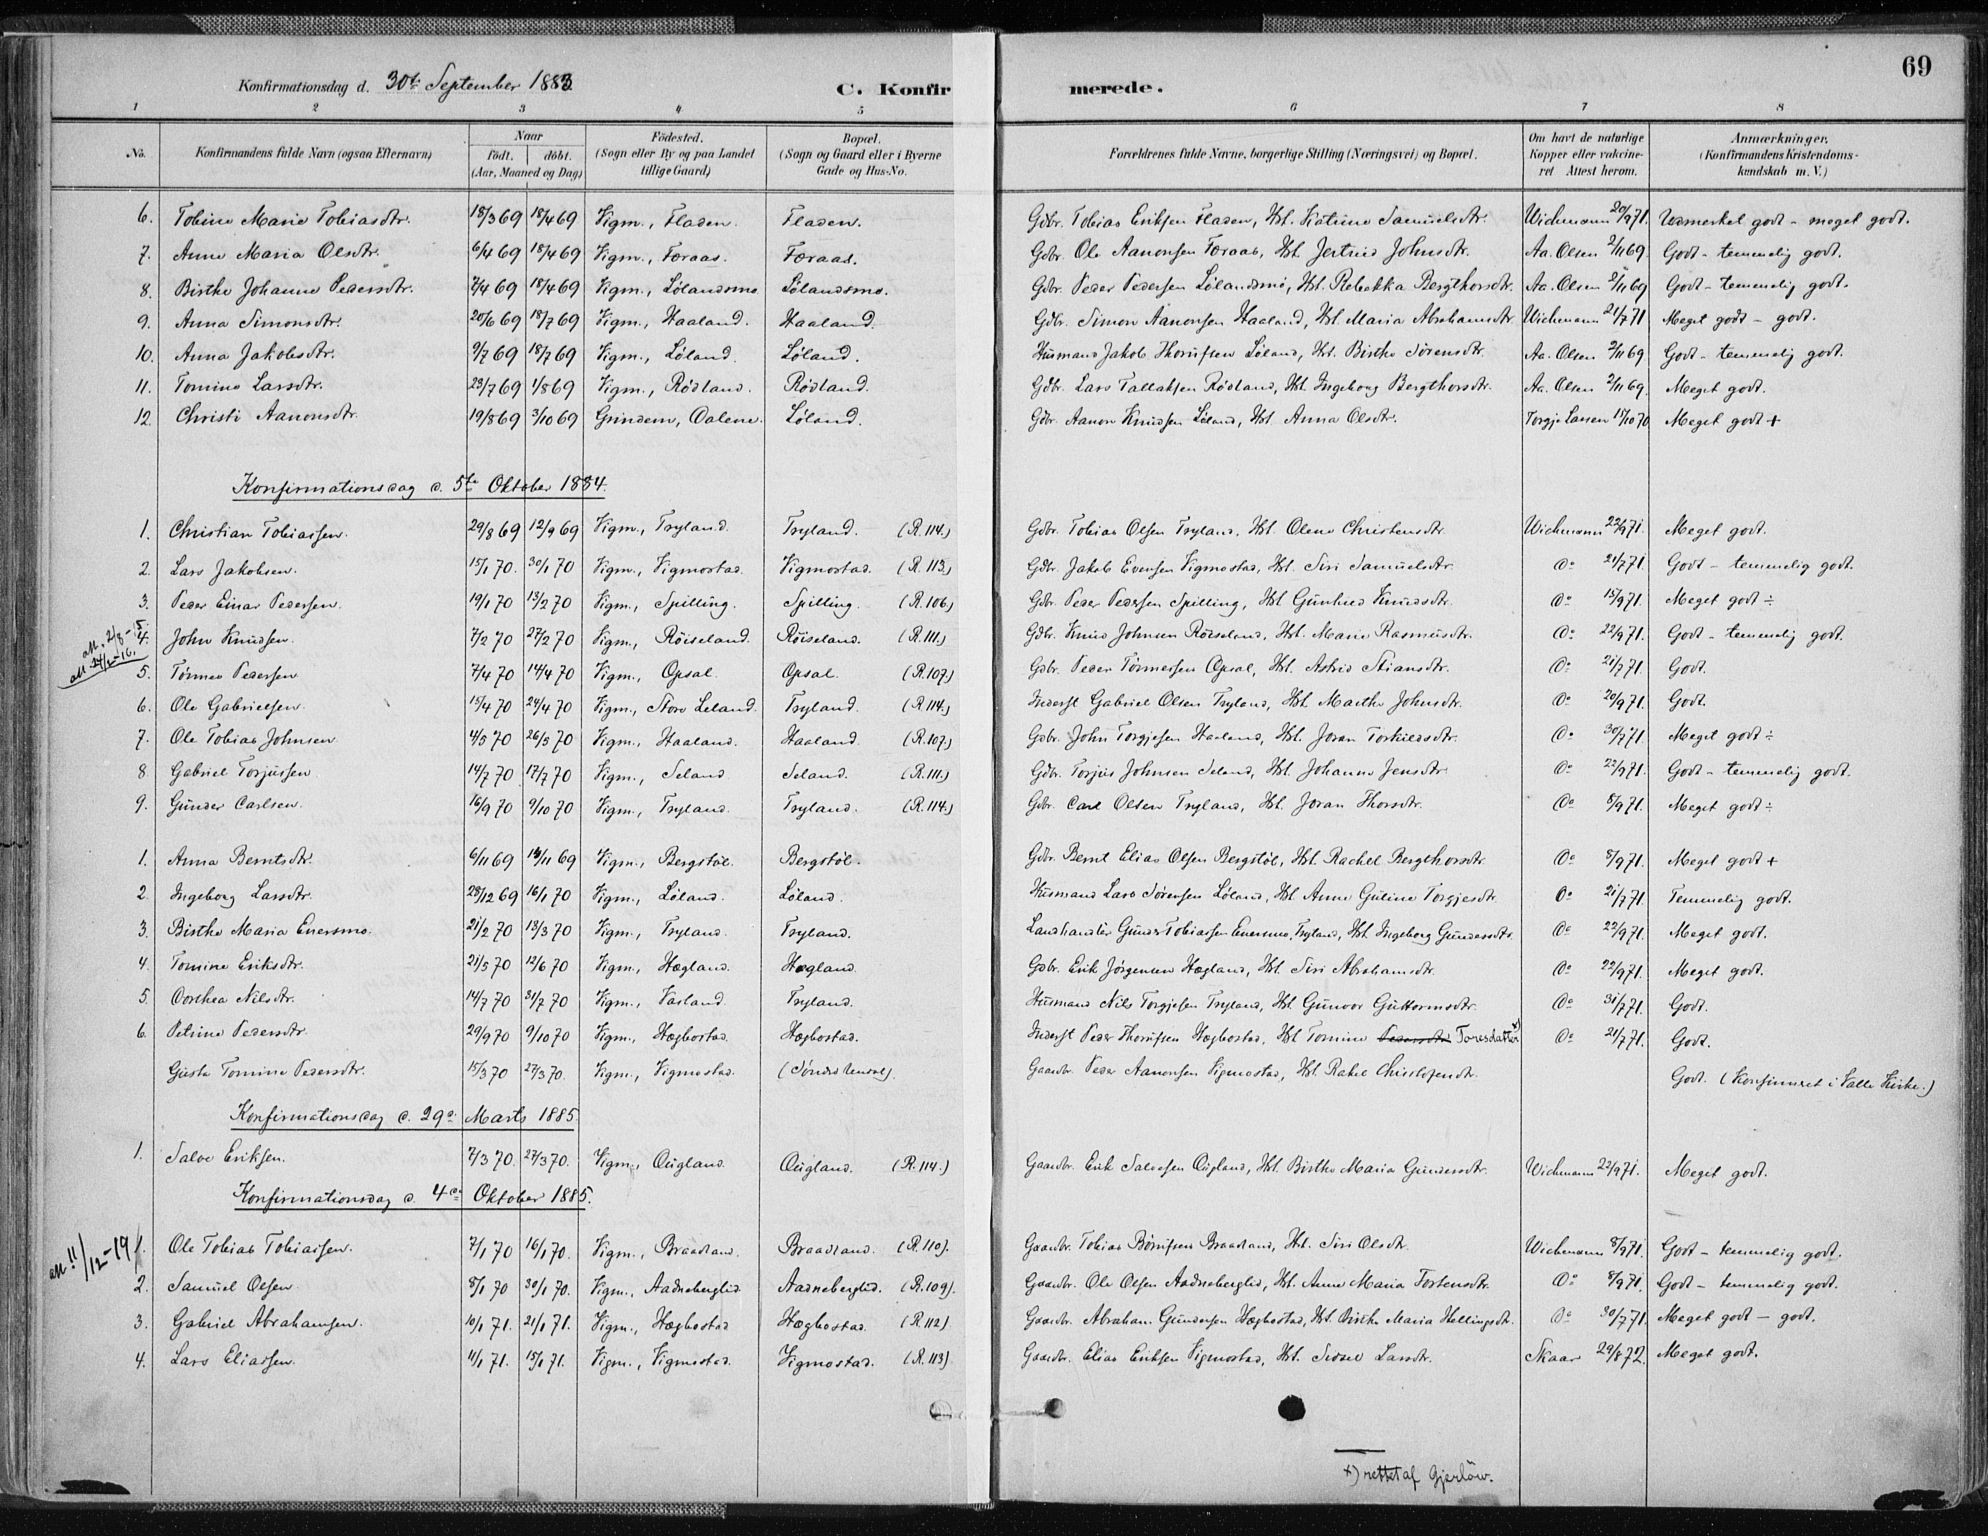 69
Konfirmationsdag d. 30te September 1883
C. Konfirmerede.
1 2 3 4 5 6 7 8
No. Konfirmandens fulde Navn (ogsaa Efternavn) Naar født. døbt. (Aar, Maaned og Dag) Fødested. (Sogn eller By og paa Landet tillige Gaard) Bopæl. (Sogn og Gaard eller i Byerne Gade og Hus-No. Forældrenes fulde Navne, borgerlige Stilling (Næringsvei) og Bopæl. Om havt de naturlige Kopper eller vakcineret Attest herom. Anmærkninger. (Konfirmandens Kristendomskundskab m. V.)
6. Tobine Marie Tobiasdtr. 18/3 69 18/4 69 Vigm., Fladen. Fladen. Gdbr. Tobias Eriksen Fladen, Hst. Katrine Samuelsdtr. Wichmann 20/9 71. Udmerket godt - meget godt.
7. Anne Maria Olsdtr. 6/4 69 18/4 69 Vigm., Foraas. Foraas. Gdbr. Ole Aanonsen Foraas, Hst. Jertrud Johnsdtr. Aa. Olsen 2/11 69. Godt - temmelig godt.
8. Birthe Johanne Pedersdtr. 7/4 69 18/4 69 Vigm., Lølandsmo Lølandsmo. Gdbr. Peder Pedersen Lølandsmo, Hst. Rebekka Bergthorsdtr. Aa. Olsen 2/11 69 Godt - temmelig godt.
9. Anna Simonsdtr. 20/6 69 18/7 69 Vigm., Haaland. Haaland. Gdbr. Simon Aanonsen Haaland, Hst. Maria Abrahamsdtr. Wichmann 21/7 71 Meget godt - godt.
10. Anna Jakobsdtr. 9/7 69 18/7 69 Vigm., Løland. Løland. Husmand Jakob Thorufsen Løland, Hst. Birthe Sørensdtr. Aa. Olsen 2/11 69 Godt - temmelig godt.
11. Tomine Larsdtr. 23/7 69 1/8 69 Vigm., Rødland. Rødland. Gdbr. Lars Tallaksen Rødland, Hst. Ingeborg Bergthorsdtr. Aa. Olsen 2/11 69. Meget godt.
12. Christi Aanonsdtr. 19/8 69 3/10 69 Grindem, Dalene. Løland. Gdbr. Aanon Knudsen Løland, Hst. Anna Olsdtr. Torgje Larsen 15/10 70 Meget godt +
Konfirmationsdag d. 5te Oktober 1884.
1. Christian Tobiassen. 29/8 69 12/9 69 Vigm., Tryland. Tryland. (R. 114.) Gdbr. Tobias Olsen Tryland, Hst. Olene Christensdtr. Wichmann 22/9 71. Meget godt.
2. Lars Jakobsen. 15/1 70. 30/1 70 Vigm., Vigmostad. Vigmostad. (R. 113.) Gdbr. Jakob Evensen Vigmostad, Hst. Siri Samuelsdtr. Do 21/7 71. Godt - temmelig godt.
3. Peder Einar Pedersen. 19/1 70 13/2 70 Vigm., Spilling. Spilling. (R. 106.) Gdbr. Peder Pedersen Spilling, Hst. Gunhild Knudsdtr. Do 15/9 71. Meget godt ÷
att. 2/8-15. att. 24/2-16.
4. John Knudsen. 7/2 70 27/2 70 Vigm., Røiseland. Røiseland. (R. 111.) Gdbr. Knud Johnsen Røiseland, Hst. Marie Rasmusdtr. Do 22/9 71. Godt - temmelig godt.
5. Tønnes Pedersen 7/4 70 14/4 70 Vigm., Opsal. Opsal. (R. 107.) Gdbr. Peder Tønnessen Opsal, Hst. Astrid Stiansdtr. Do 21/7 71. Godt.
6. Ole Gabrielsen. 15/4 70 24/4 70 Vigm., Store Leland. Tryland. (R. 114.) Inderst Gabriel Olsen Tryland, Hst. Marthe Johnsdtr. Do 20/9 71. Godt.
7. Ole Tobias Johnsen. 4/5 70 26/5 70 Vigm., Haaland. Haaland. (R. 107.) Gdbr. John Torgjesen Haaland, Hst. Joran Torkildsdtr. Do 30/7 71. Meget godt ÷
8. Gabriel Torjussen 14/7 70 17/7 70 Vigm., Seland. Seland. (R. 111.) Gdbr. Torjus Johnsen Seland, Hst. Johanne Jensdtr. Do 22/9 71. Godt - temmelig godt.
9. Gunder Carlsen. 16/9 70 9/10 70 Vigm., Tryland. Tryland. (R. 114.) Gdbr. Carl Olsen Tryland, Hst. Joran Thorsdtr. Do 8/9 71. Meget godt ÷
1. Anna Berntsdtr. 6/11 69 14/11 69 Vigm., Bergstøl. Bergstøl. Gdbr. Bernt Elias Olsen Bergstøl, Hst. Rachel Bergthorsdtr. Do 8/9 71. Meget godt +
2. Ingeborg Larsdtr. 28/12 69 16/1 70 Vigm., Løland. Løland. Husmand Lars Sørensen Løland, Hst. Anne Guline Torgjesdtr. Do 21/7 71. Temmelig godt.
3. Birthe Maria Enersmo. 21/2 70 13/3 70 Vigm., Tryland. Tryland. Landhandler Gunder Tobiassen Enersmo, Tryland, Hst. Ingeborg Gundersdtr. Do 22/9 71. Meget godt.
4. Tomine Eriksdtr. 21/5 70 12/6 70 Vigm., Hægland. Hægland. Gdbr. Erik Jørgensen Hægland, Hst. Siri Abrahamsdtr. Do 22/9 71. Meget godt.
5. Dorthea Nilsdtr. 14/7 70 31/7 70 Vigm., Vasland. Tryland. Husmand Nils Torgjesen Tryland, Hst. Gunvor Guttormsdtr. Do 31/7 71. Godt.
6. Petrine Pedersdtr. 29/9 70 9/10 70 Vigm., Hægbostad. Hægbostad. Inderst Peder Thorufsen Hægbostad, Hst. Tomine Pedersdtr Toresdatter x) Do 21/7 71. Godt.
Gusta Tomine Pedersdtr. 15/3 70 27/3 70. Vigm., Vigmostad. (Søndre Undal). Gaardbr. Peder Aanonsen Vigmostad, Hst. Rakel Christofersdtr. Godt. (Konfirmeret i Valle Kirke.)
Konfirmationsdag d. 29de Marts 1885.
1. Salve Eriksen. 7/3 70. 27/3 70. Vigm., Øigland. Øigland. (R. 114.) Gaardbr. Erik Salvesen Øigland, Hst. Birthe Maria Gundersdtr. Wichmann 22/9 71. Meget godt.
Konfirmationsdag d. 4de Oktober 1885.
att 11/12-19
1. Ole Tobias Tobiassen. 7/1 70 16/1 70. Vigm., Braadland. Braadland. (R. 110). Gaardbr. Tobias Børufsen Braadland, Hst. Siri Olsdtr. Wichmann 8/9 71. Godt - temmelig godt.
2. Samuel Olsen 8/1 70 30/1 70. Vigm., Aadneberglid Aadneberglid. (R. 109). Gaardbr. Ole Olsen Aadneberglid, Hst. Anne Maria Torkensdtr. Do 8/9 71. Godt - temmelig godt.
3. Gabriel Abrahamsen. 10/1 71. 21/1 71. Vigm., Hægbostad Hægbostad. (R 112). Gaardbr. Abraham Gundersen Hægbostad, Hst. Birthe Maria Hellingsdtr. Do 30/7 71 Meget godt - godt.
4. Lars Eliassen. 11/1 71. 15/1 71. Vigm., Vigmostad. Vigmostad. (R. 113) Gaardbr. Elias Eriksen Vigmostad, Hst. Sidsel Larsdtr. Skaar 29/8 72. Meget godt.
x) rettet af Gjerløw.